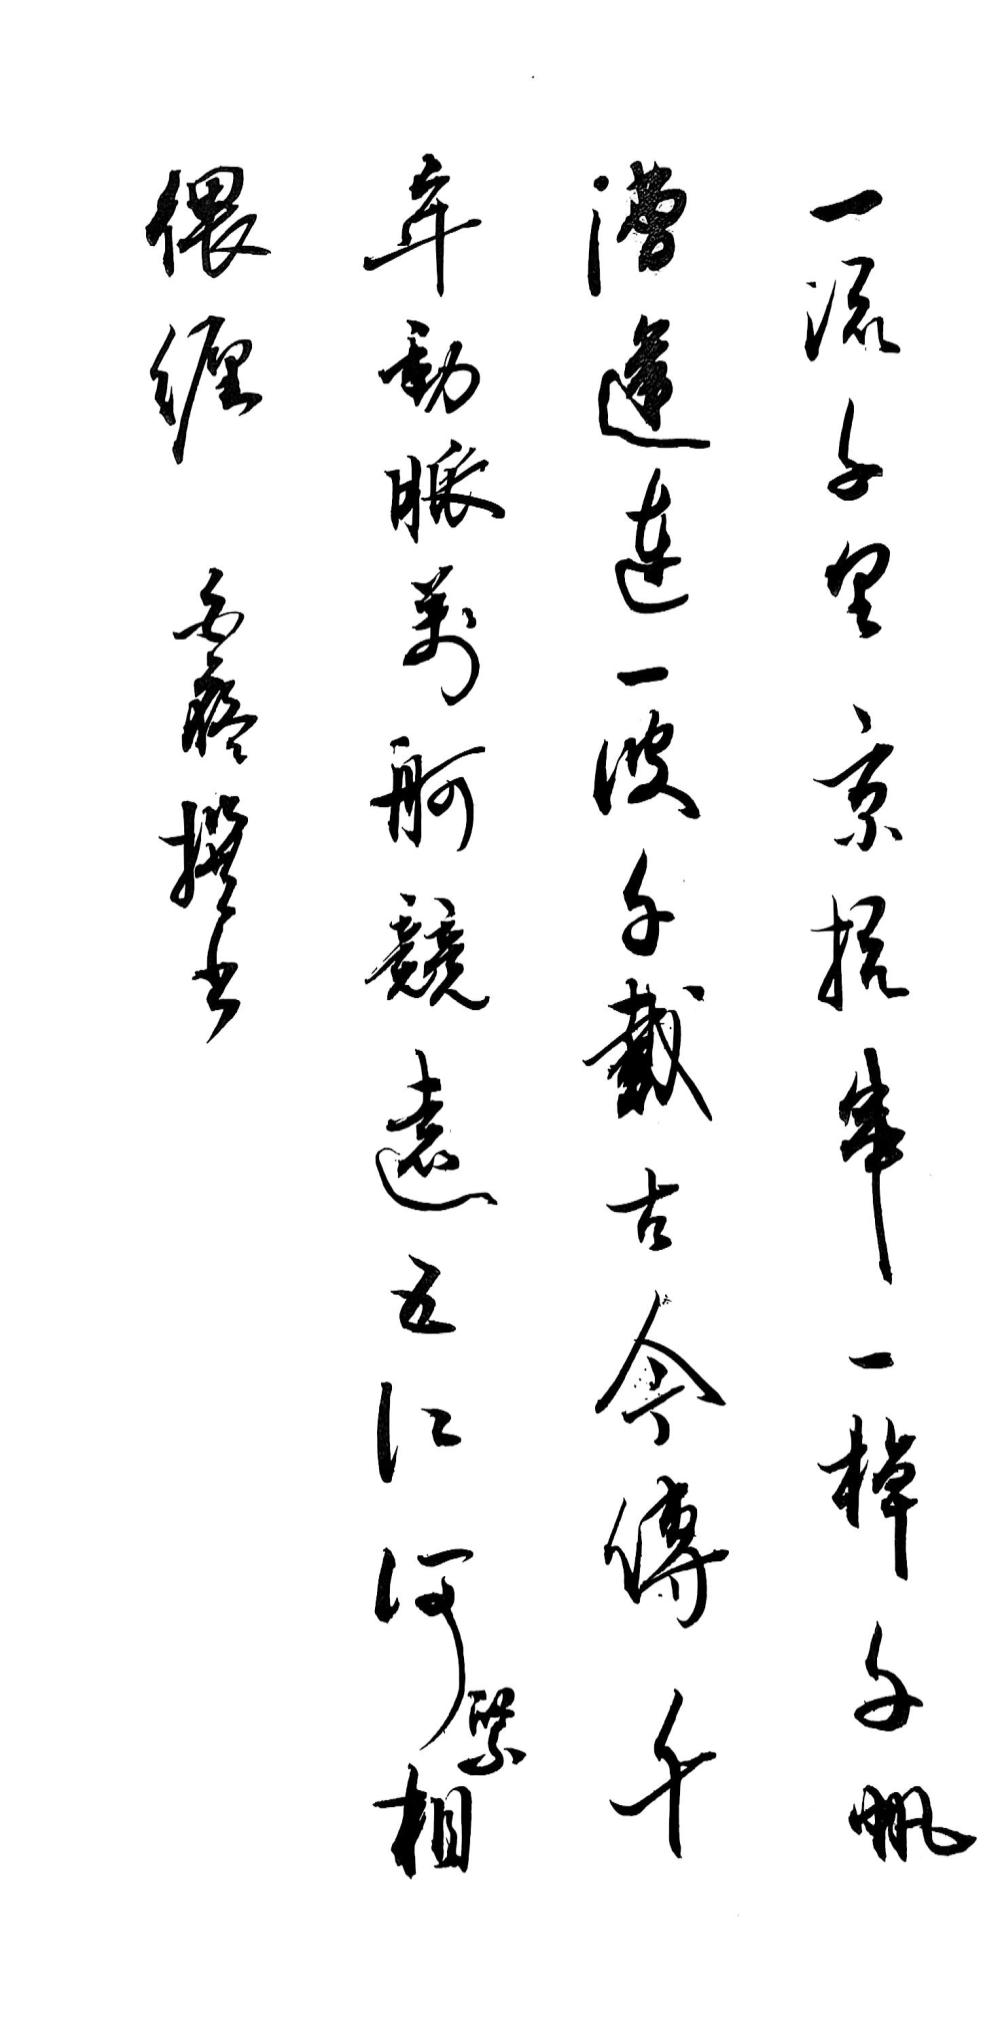 一流千里京杭串一棹千帆
漕運連一波千載古今傳千
年動脈萬舸競遠五江河緊相
偎纏 撰书